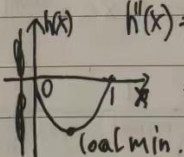 h(x)
h''(x) =
0
1
x
loal min.